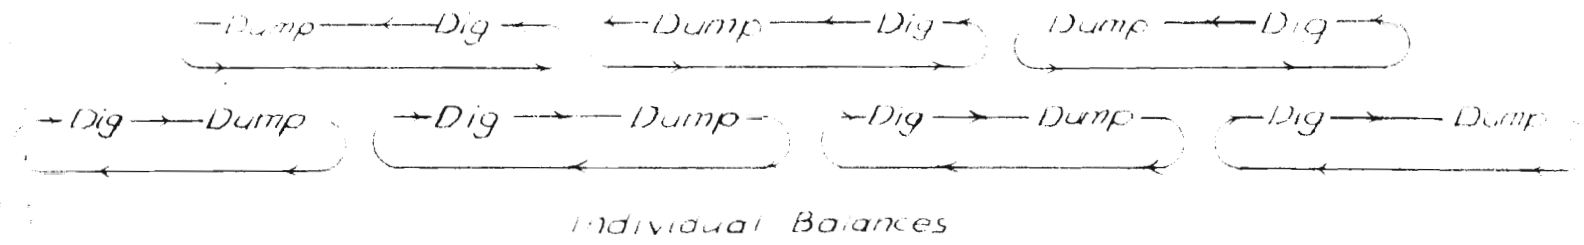 Dump Dig Dump Dig Dump Dig
Dig Dump Dig Dump Dig Dump Dig Dump
Individual Balances